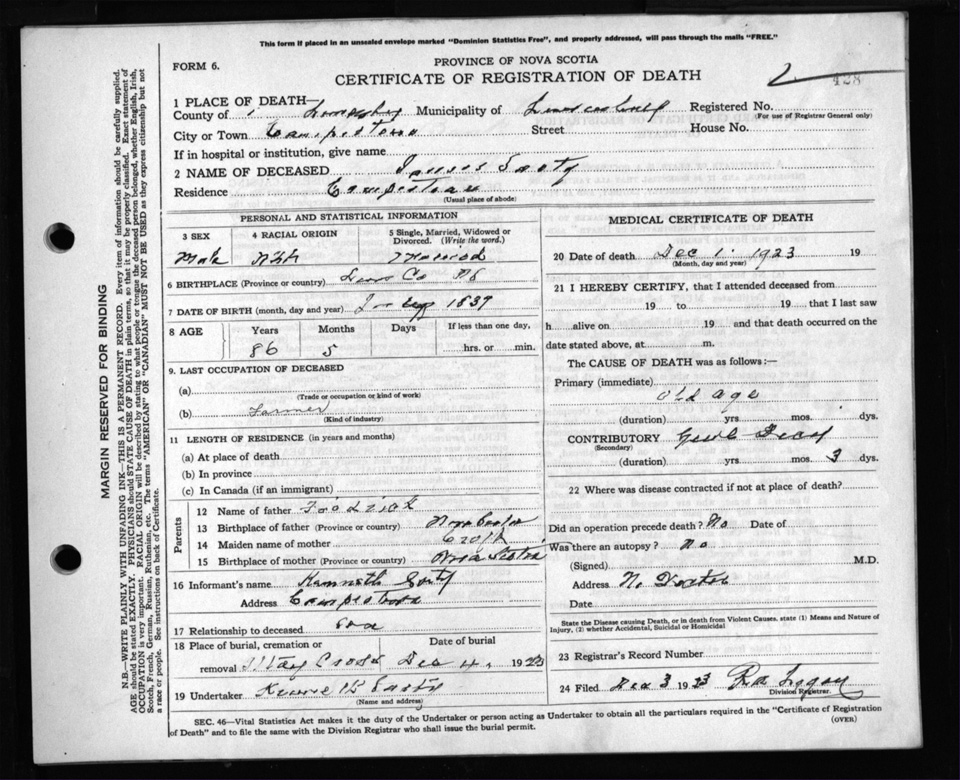 This form if placed in an unsealed envelope marked "Dominion Statistics Free", and properly addressed, will pass through the mails "FREE."
FORM 6.
PROVINCE OF NOVA SCOTIA
CERTIFICATE OF REGISTRATION OF DEATH
2
428
1 PLACE OF DEATH—
County of Municipality of Registered No.
(For use of Registrar General only)
City or Town Street House No.
If in hospital or institution, give name
2 NAME OF DECEASED
Residence
(Usual place of abode)
PERSONAL AND STATISTICAL INFORMATION
3 SEX 4 RACIAL ORIGIN 5 Single, Married, Widowed or Divorced. (Write the word.)
Male Married
6 BIRTHPLACE (Province or country) Co NS
7 DATE OF BIRTH (month, day and year) 1837
8 AGE Years Months Days If less than one day,
86 5 hrs. or min.
9. LAST OCCUPATION OF DECEASED
(a)
(Trade or occupation or kind of work)
(b) Farmer
(Kind of industry)
11 LENGTH OF RESIDENCE (in years and months)
(a) At place of death
(b) In province
(c) In Canada (if an immigrant)
Parents
12 Name of father
13 Birthplace of father (Province or country) Nova Scotia
14 Maiden name of mother
15 Birthplace of mother (Province or country) Nova Scotia
16 Informant's name Kenneth
Address
17 Relationship to deceased son
18 Place of burial, cremation or Date of burial
removal Dec 4, 1923
19 Undertaker
(Name and address)
MEDICAL CERTIFICATE OF DEATH
20 Date of death Dec 1. 1923 19
(Month, day and year)
21 I HEREBY CERTIFY, that I attended deceased from
19 to 19 that I last saw
h alive on 19 and that death occurred on the
date stated above, at m.
The CAUSE OF DEATH was as follows:—
Primary (immediate)
old age
(duration) yrs. mos. dys.
CONTRIBUTORY
(Secondary)
(duration) yrs. mos. 3 dys.
22 Where was disease contracted if not at place of death?
Did an operation precede death? No Date of
Was there an autopsy? No
(Signed) M.D.
Address No Doctor
Date
State the Disease causing Death, or in death from Violent Causes, state (1) Means and Nature of Injury, (2) whether Accidental, Suicidal or Homicidal
23 Registrar's Record Number
24 Filed Dec 3 1923
Division Registrar.
SEC. 46—Vital Statistics Act makes it the duty of the Undertaker or person acting as Undertaker to obtain all the particulars required in the "Certificate of Registration
of Death" and to file the same with the Division Registrar who shall issue the burial permit.
(OVER)
MARGIN RESERVED FOR BINDING
N.B.—WRITE PLAINLY WITH UNFADING INK—THIS IS A PERMANENT RECORD. Every item of information should be carefully supplied.
AGE should be stated EXACTLY. PHYSICIANS should STATE CAUSE OF DEATH in plain terms, so that it may be properly classified. Exact statement of
OCCUPATION is very important. RACIAL ORIGIN will be described by stating to what people or tongue the deceased person belonged, whether English, Irish,
Scotch, French, German, Russian, Ruthenian, etc. The terms "AMERICAN" OR "CANADIAN" MUST NOT BE USED as they express citizenship but not
a race or people. See instructions on back of Certificate.